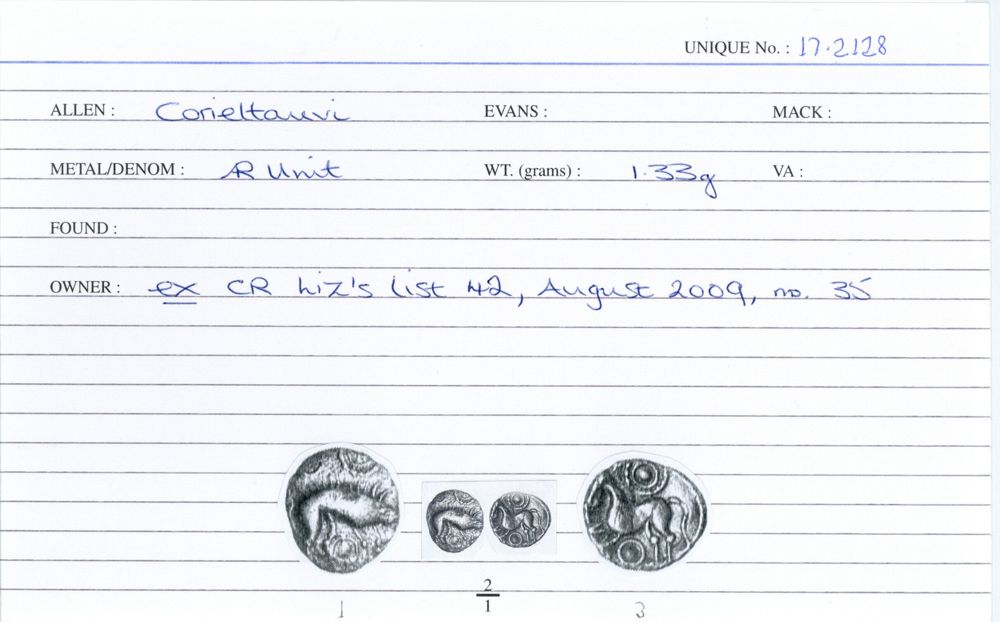 UNIQUE No. : 17.2128
ALLEN : Corieltauvi EVANS : MACK :
METAL/DENOM : AR Unit WT. (grams) : 1.33g VA :
FOUND :
OWNER : ex CR Liz's list 42, August 2009, no. 35
2
1 1 3